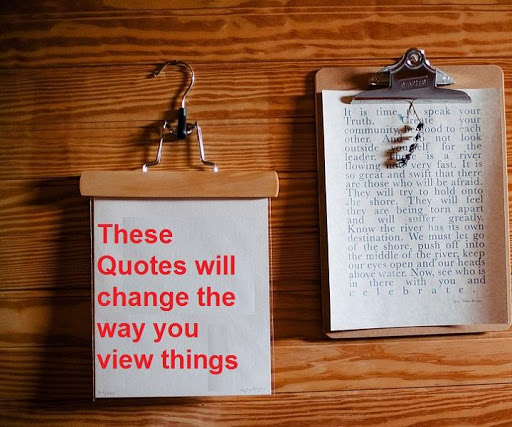 These
Quotes will
change the
way you
view things
It is time to speak your
Truth. Create your
community. good to each
other. And not look
outside yourself for the
leader. is a river
flowing very fast. It is
so great and swift that there
are those who will be afraid.
They will try to hold onto
the shore. They will feel
they are being torn apart
and will suffer greatly.
Know the river has its own
destination. We must let go
of the shore, push off into
the middle of the river, keep
our eyes open and our heads
above water. Now, see who is
in there with you and
celebrate.